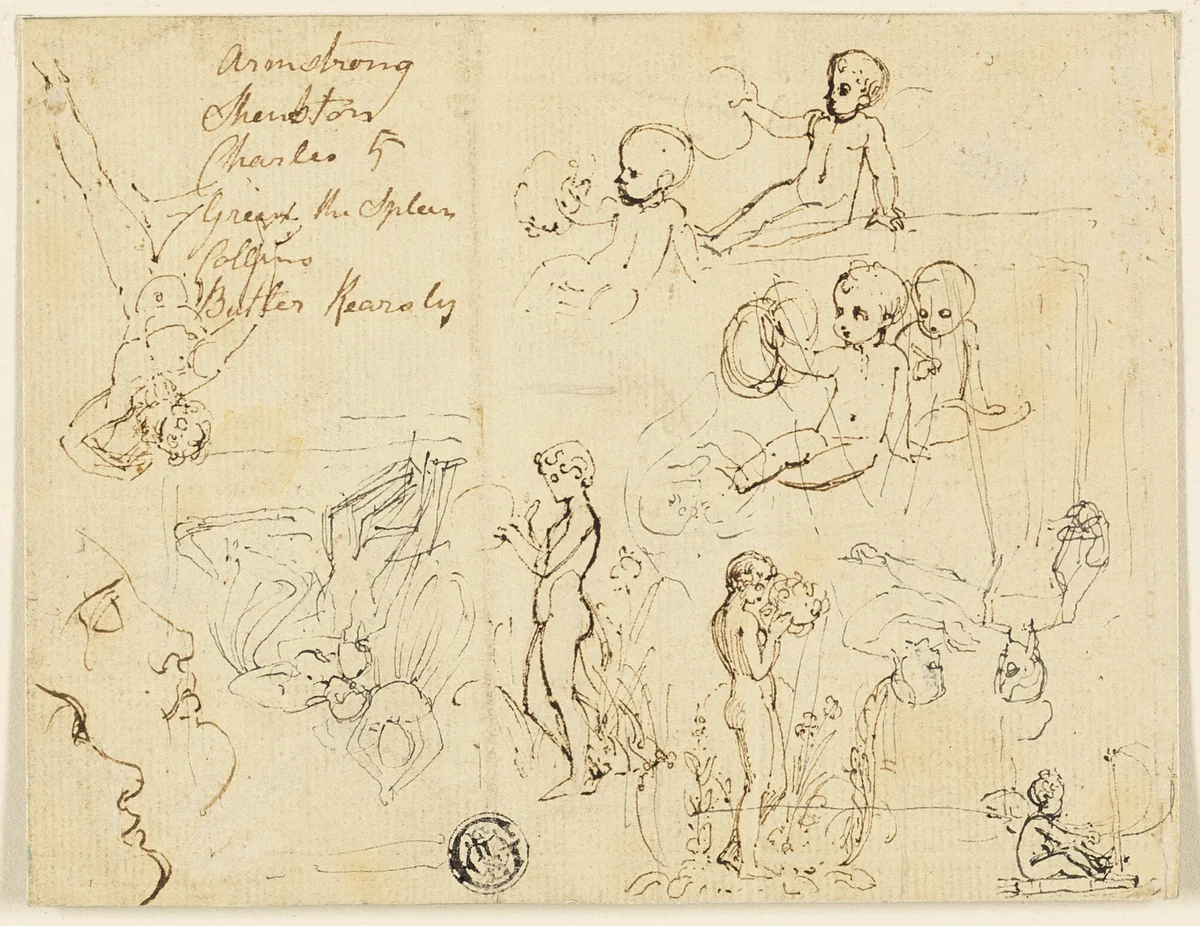 Armstrong
Shenston
Charles 5
Green the Spleen
Collins
Butler Kearsly